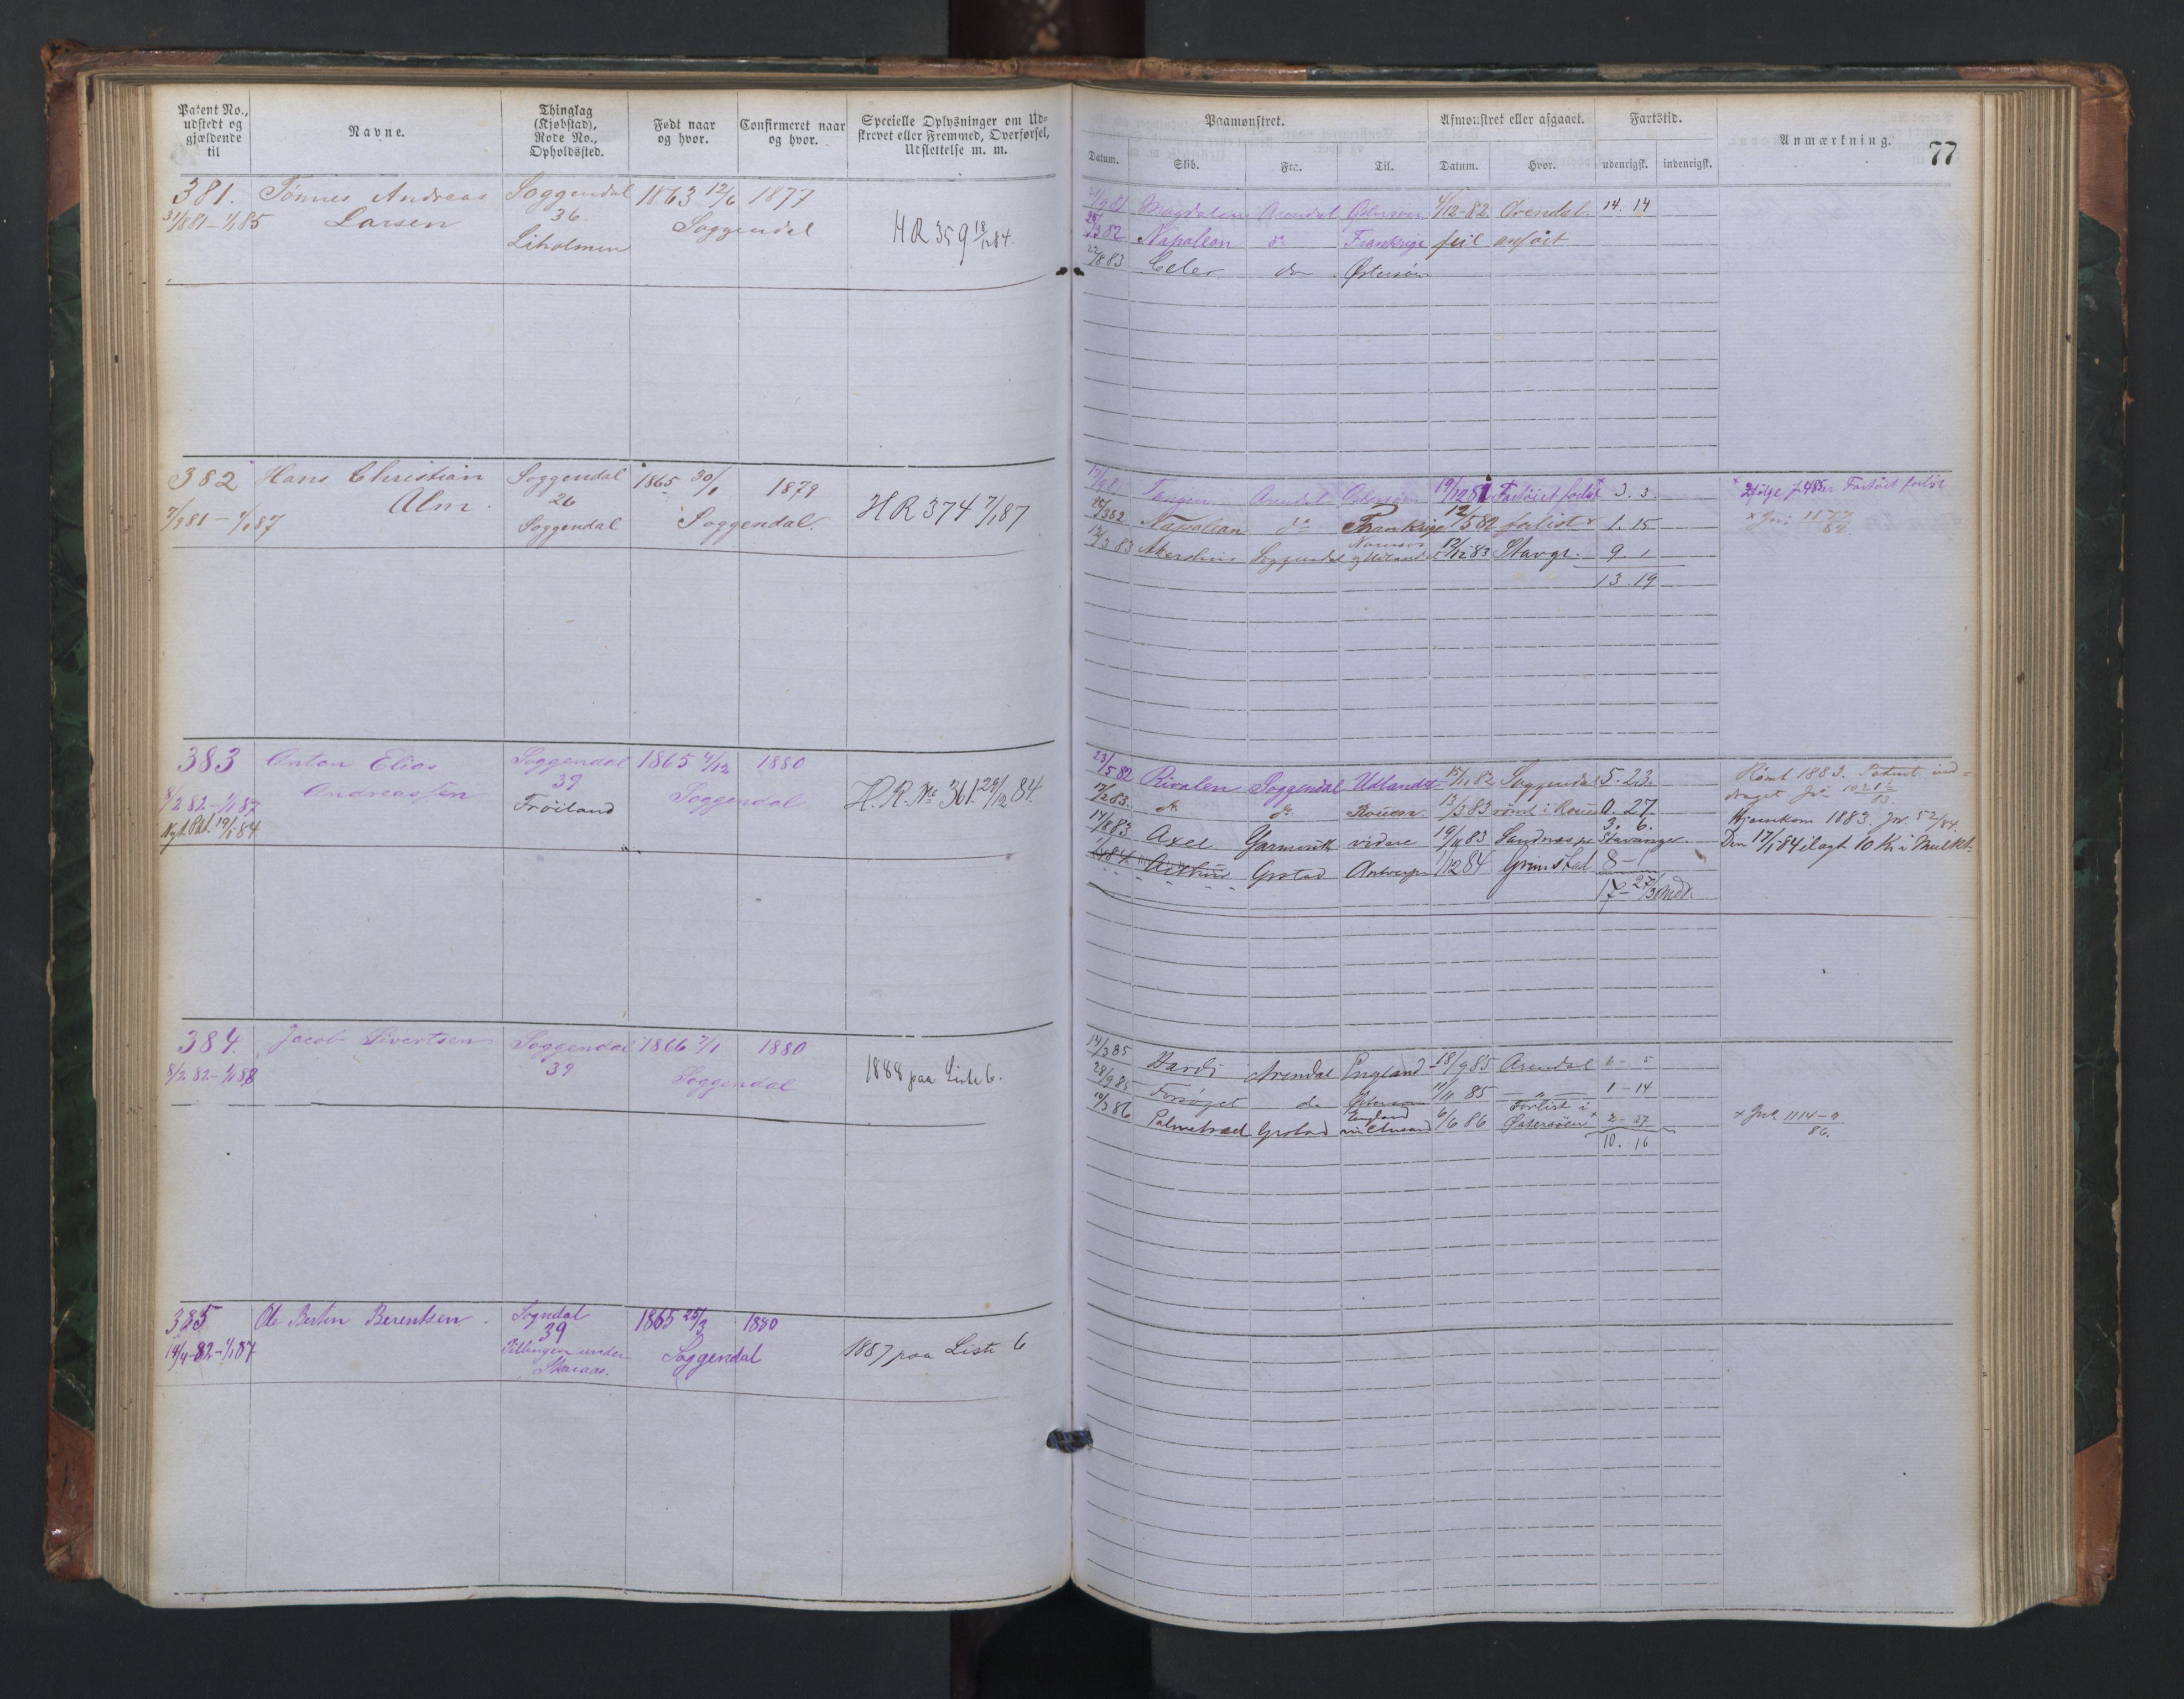 Patent No., udstedt og gjældende til
Navne.
Thinglag (Kjøbstad), Rode No., Opholdssted.
Født naar og hvor.
Confirmeret naar og hvor.
Specielle Oplysninger om Udskrevet eller Fremmed, Overførsel, Udslettelse m. m.
381. Tønnes Andreas Soggendal 1863 12/6 1877
31/8 81 – 1/1 85 Larsen 36. Soggendal HR 359 18/12 84.
Liholmen
382 Hans Christian Soggendal 1865 30/1 1879
Alm. 26 HR 374 7/1 87
7/9 81 – 1/1 87 Soggendal Soggendal
383 Anton Elias Soggendal 1865 4/12 1880
8/2 82 – 1/1 87 Andreassen 39 Soggendal H. R. No 361. 29/12 84.
Nyt Pat. 19/1 84 Frøiland
384. Jacob Sivertsen Soggendal 1866 7/1 1880
8/2 82 – 1/1 88 39 Soggendal 1888 paa Liste 6.
385 Ole Bertin Berentsen. Sogndal 1865 25/3 1880
39
14/4 82 – 1/1 87 under Soggendal 1887 paa Liste 6
Skaraas.
77
Paamønstret.
Afmønstret eller afgaaet.
Fartstid.
Anmærkning.
Datum.
Skib.
Fra.
Til.
Datum.
Hvor.
udenrigsk.
indenrigsk.
Magdalene Arendal Østersøen 4/12-82 Arendal. 14. 14
3 82 Napoleon do Frankrige feil anført
22/8 83 Celer do Østersøen
Tangen Arendal Østersøen 19/12 81 Fartøiet forlist 3. 3. Fartøiet forlist
25/3 82 Napoleon do Frankrige 12/5 82 forlist x 1. 15 x Jnr 1177/82
12/3 83 Akershus Soggendal og Udlandet 12/12 83 Stavgr. 9. 1
13. 19
23/5 82 Rivalen Soggendal Udlandet 15/11 82 Soggendal 5. 23. Rømt 1883. Patent ind-
17/2 83. do do Rouen 13/3 83 rømt i Rouen 0. 27. draget
3. 6. Hjemkom 1883. Jnr 52/84.
14/8 83 Axel Yarmouth videre 19/11 83 Sandnes pr Stavanger. Den 17/1 84 ilagt 10 Kr i Mulkt.
84 Arthur Grstad Antwerpen 1/12 84 Grimstad 8 – 1
17 – 27/30 Mdr.
14/3 85 Hardi Arendal England 18/9 85 Arendal 6 – 5
28/9 85 Forsøget do 11/11 85 – " – 1 – 14
10/3 86 Palmetræd Grstad England 6/6 86 Forlist i Østersøen x 2 – 27 x Jnr. 1114 – 9/86.
10. 16